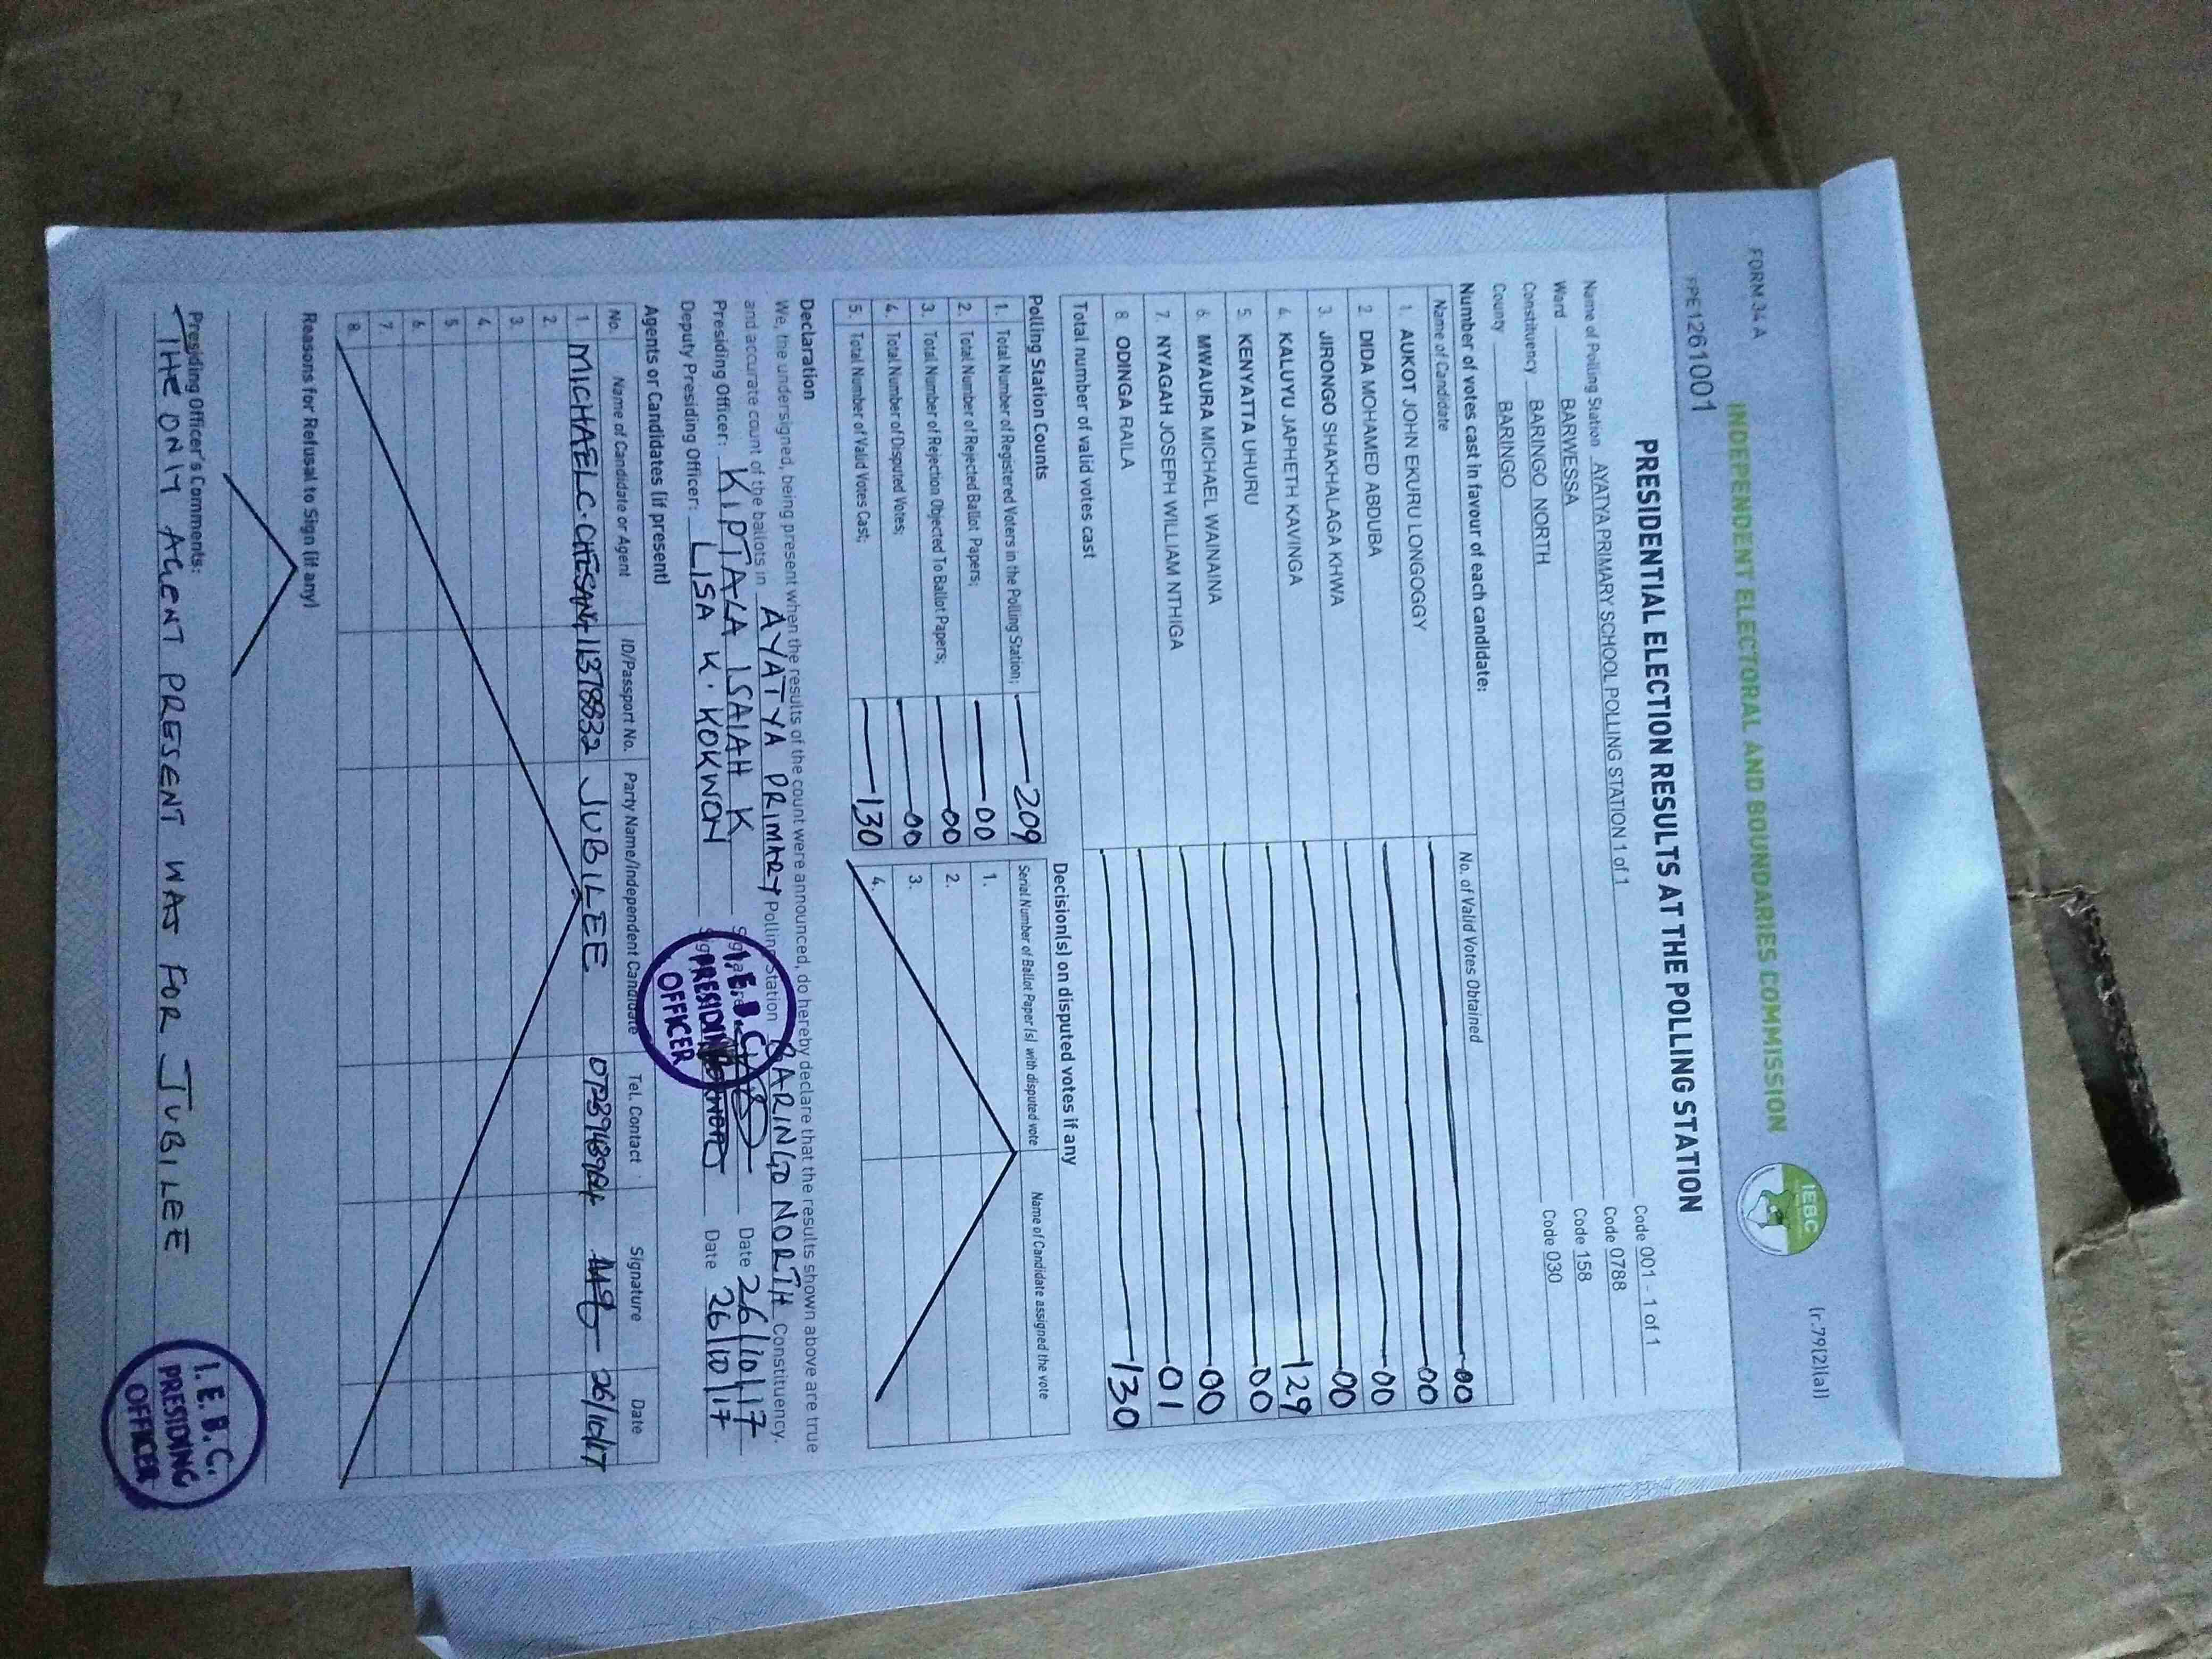 FORM 34 A
(r.79(2)(a))
INDEPENDENT ELECTORAL AND BOUNDARIES COMMISSION
IEBC
FPE1261001
PRESIDENTIAL ELECTION RESULTS AT THE POLLING STATION
Name of Polling Station AYATYA PRIMARY SCHOOL POLLING STATION 1 of 1 Code 001 - 1 of 1
Ward BARWESSA Code 0788
Constituency BARINGO NORTH Code 158
County BARINGO Code 030
Number of votes cast in favour of each candidate:
Name of Candidate No. of Valid Votes Obtained
1. AUKOT JOHN EKURU LONGOGGY 00
2. DIDA MOHAMED ABDUBA 00
3. JIRONGO SHAKHALAGA KHWA 00
4. KALUYU JAPHETH KAVINGA 00
5. KENYATTA UHURU 129
6. MWAURA MICHAEL WAINAINA 00
7. NYAGAH JOSEPH WILLIAM NTHIGA 00
8. ODINGA RAILA 01
Total number of valid votes cast 130
Polling Station Counts
1. Total Number of Registered Voters in the Polling Station; 209
2. Total Number of Rejected Ballot Papers; 00
3. Total Number of Rejection Objected To Ballot Papers; 00
4. Total Number of Disputed Votes; 00
5. Total Number of Valid Votes Cast; 130
Decision(s) on disputed votes if any
Serial Number of Ballot Paper(s) with disputed vote Name of Candidate assigned the vote
1.
2.
3.
4.
Declaration
We, the undersigned, being present when the results of the count were announced, do hereby declare that the results shown above are true
and accurate count of the ballots in AYATYA PRIMARY Polling Station BARINGO NORTH Constituency.
Presiding Officer: KIPTALA ISAIAH K Date 26/10/17
Deputy Presiding Officer: LISA K. KOKWON Date 26/10/17
I.E.B.C.
PRESIDING
OFFICER
Agents or Candidates (if present)
No. Name of Candidate or Agent ID/Passport No. Party Name/Independent Candidate Tel. Contact Signature Date
1. MICHAEL C. 11378832 JUBILEE 26/10/17
2.
3.
4.
5.
6.
7.
8.
Reasons for Refusal to Sign (if any)
Presiding Officer's Comments:
THE ONLY AGENT PRESENT WAS FOR JUBILEE
I.E.B.C.
PRESIDING
OFFICER